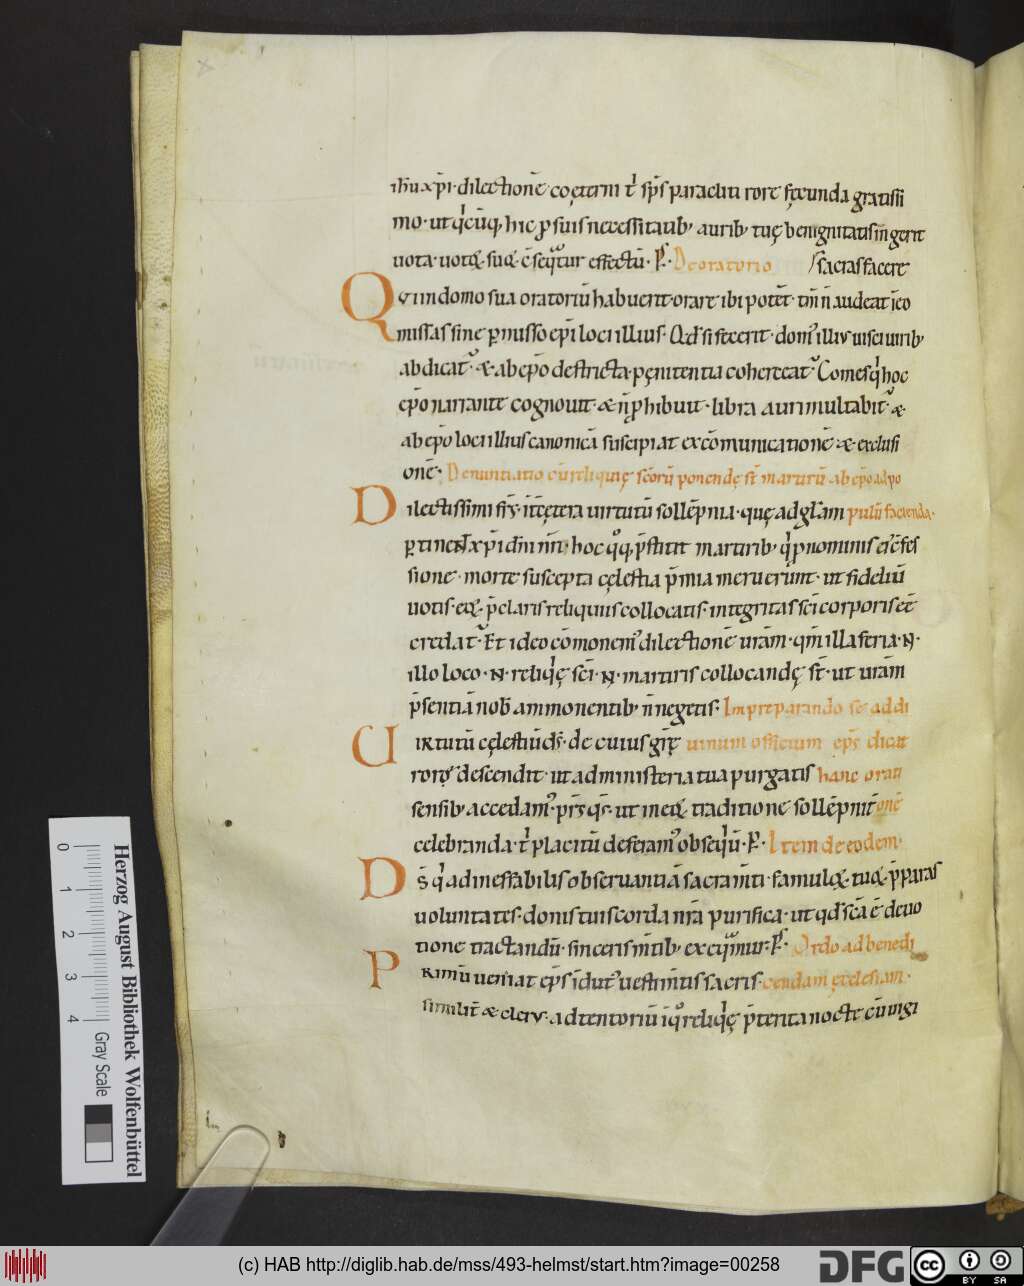 ihu xp̄i. dilectionē coęterni & sp̄s paracliti rore fęcunda gratissi
mo. ut q̇cūq, hic ꝓ suis necessitatib; aurib; tuę benignitatis ingerit
uota. uotoꝝ suoꝝ c̄sequatur effectū. P̄. De oratorio
sacras facere
Qui in domo sua oratoriū habuerit. orare ibi potēt. tam̄ n̄ audeat ī eo
missas sine ꝑmisso ep̄i loci illius. Qd si fecerit. dom' illius uisci uirib;
abdicat'. & ab ep̄o destricta pęnitentia cohereeat'. Comes q̇ hoc
ep̄o narrante cognouit. & n̄ ꝓhibuit. libra auri multabit'. &
ab ep̄o loci illius canonicā suscipiat excōmunicationē & exclusi
onē. Denuntiatio cū reliquię sc̄orū ponendę st̄ martirū ab ep̄o ad po
Dilectissimi fr̄s. īt̄ cętera uirtutū sollēpnia. quę ad gl̄am pulū facienda.
ꝑtinent xp̄i dn̄i nr̄i. hoc q̊q, p̄stitit martirib; q̇ ꝓ nominis ei' c̄fes
sione. morte suscepta cęlestia p̄mia meruerunt. ut fideliū
uotis. eoꝝ. p̄claris reliquiis collocatis. integritas sc̄i corporis eē
credat'. Et ideo cōmonem' dilectionē urām. qm̄ illa feria. N.
illo loco. N. reliq̇ę sc̄i. N. martiris collocandę st̄. ut urām
p̄sentiā nob̄ ammonentib; n̄ negetis. In preparando se ad di
Uirtutū cęlestiū ds̄. de cuius gr̄ę uinum officium ep̄s dicat
rore descendit. ut ad ministeria tua purgatis hanc orati
sensib; accedam'. pr̄s qs̄. ut in eoꝝ traditione sollēpnit' onē
celebranda. t̄ placitū deferam' obseq̇ū. P̄. Item de eodem.
Ds̄ q̇ ad ineffabilis obseruantiā sacram̄ti. famuloꝝ. tuoꝝ. p̄paras
uoluntates. donis tuis corda nr̄a purifica. ut qd sc̄a ē deuo
tione tractandū. sinceris m̄tib; exequamur. P̄. Ordo ad benedi
Primū ueniat ep̄s īdut' uestim̄tis sacris. cendam ęcclesiam.
similit' & clerus. ad tentoriū ī q̊ reliq̇ę p̄terita nocte cū uigi
Herzog August Bibliothek Wolfenbüttel
0 1 2 3 4 Gray Scale
(c) HAB http://diglib.hab.de/mss/493-helmst/start.htm?image=00258
DFG
cc BY SA